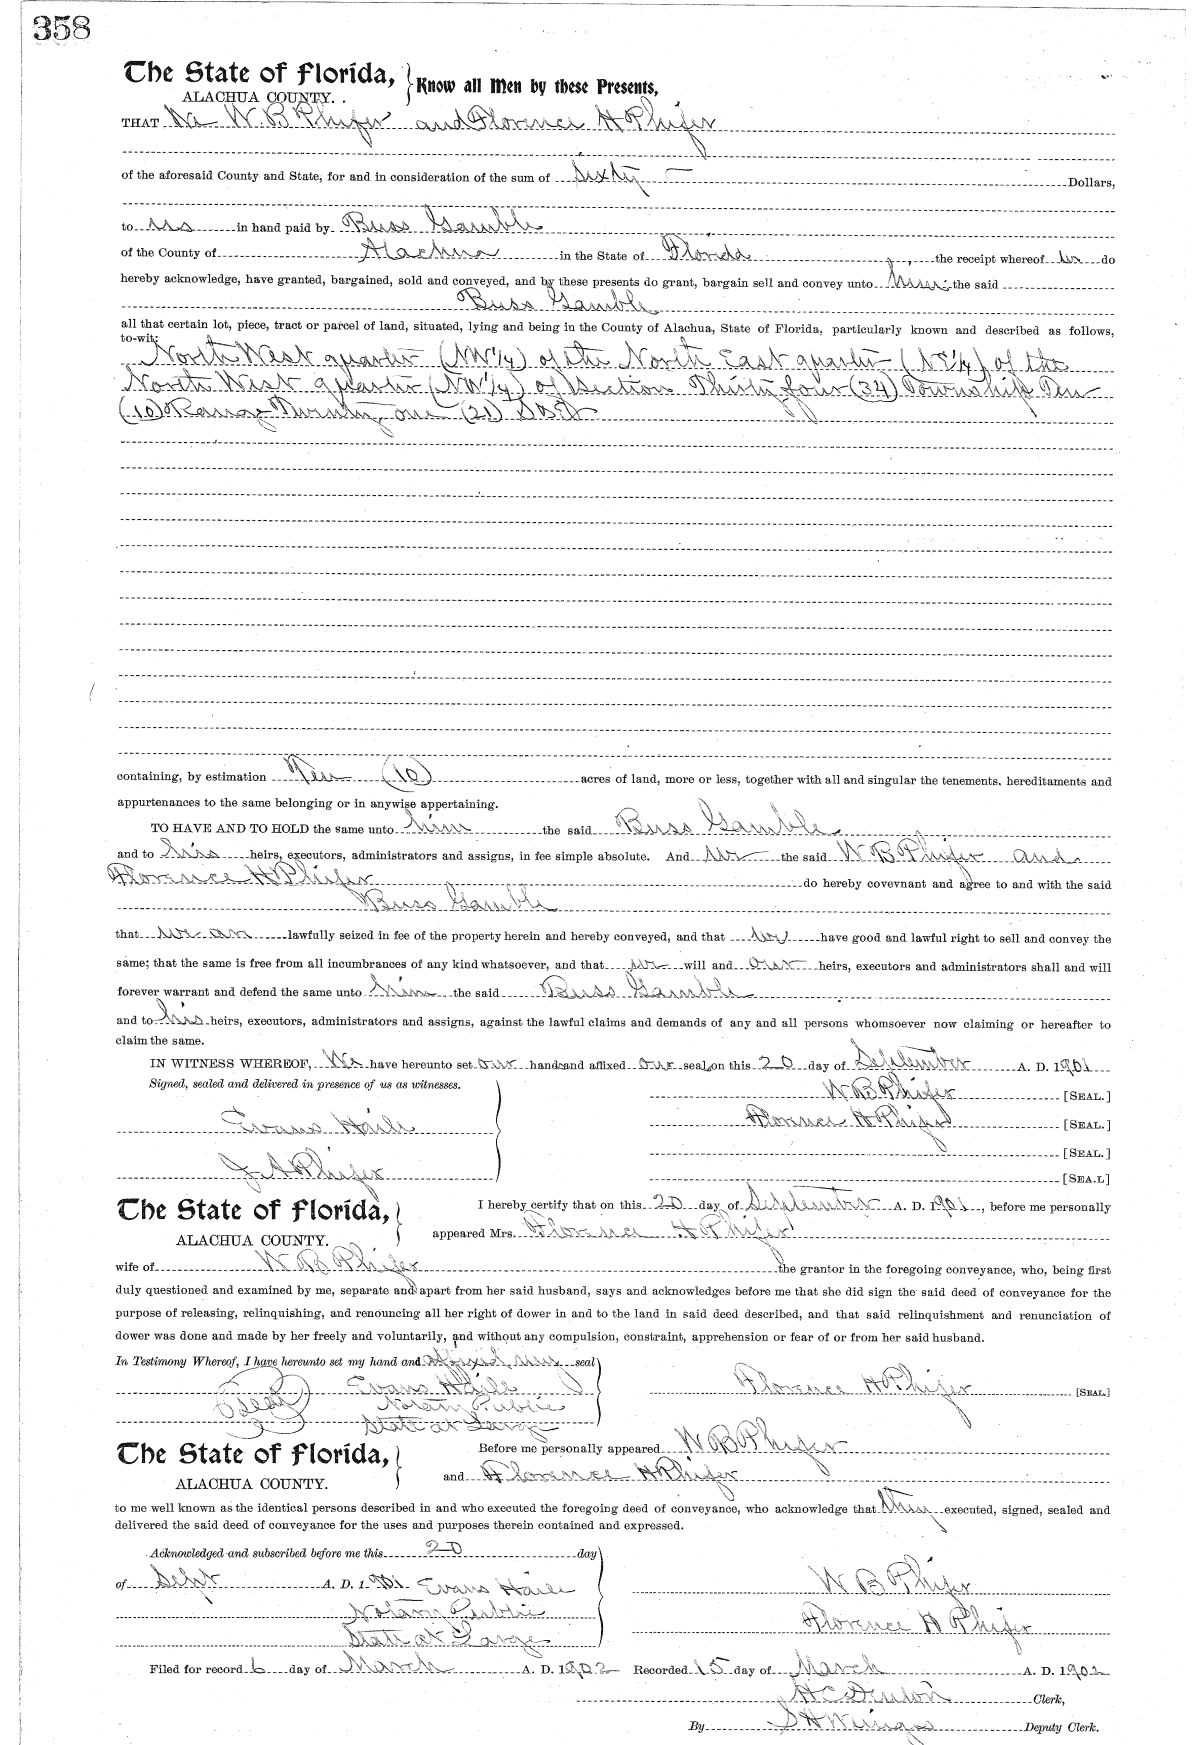 358
The State of Florida, } Know all Men by these Presents,
ALACHUA COUNTY.
THAT We W. B Phifer and Florence H Phifer
of the aforesaid County and State, for and in consideration of the sum of Sixty Dollars,
to us in hand paid by Buss Gamble
of the County of Alachua in the State of Florida, the receipt whereof we do
hereby acknowledge, have granted, bargained, sold and conveyed, and by these presents do grant, bargain sell and convey unto him the said
Buss Gamble
all that certain lot, piece, tract or parcel of land, situated, lying and being in the County of Alachua, State of Florida, particularly known and described as follows,
to-wit:
North West quarter (NW1/4) of the North East quarter (NE1/4) of the
North West quarter (NW1/4) of Section Thirty four (34) Township Ten
(10) Range Twenty one (21)
containing, by estimation Ten (10) acres of land, more or less, together with all and singular the tenements, hereditaments and
appurtenances to the same belonging or in anywise appertaining.
TO HAVE AND TO HOLD the same unto him the said Buss Gamble
and to his heirs, executors, administrators and assigns, in fee simple absolute. And we the said W B Phifer and
Florence H Phifer do hereby covevnant and agree to and with the said
Buss Gamble
that we are lawfully seized in fee of the property herein and hereby conveyed, and that we have good and lawful right to sell and convey the
same; that the same is free from all incumbrances of any kind whatsoever, and that we will and our heirs, executors and administrators shall and will
forever warrant and defend the same unto him the said Buss Gamble
and to his heirs, executors, administrators and assigns, against the lawful claims and demands of any and all persons whomsoever now claiming or hereafter to
claim the same.
IN WITNESS WHEREOF, We have hereunto set our hands and affixed our seals on this 20 day of September A. D. 1901
Signed, sealed and delivered in presence of us as witnesses.
W B Phifer [SEAL.]
Evans Haile Florence H Phifer [SEAL.]
[SEAL.]
J A Phifer [SEA.L]
The State of Florida, } I hereby certify that on this 20 day of September A. D. 1901, before me personally
ALACHUA COUNTY. appeared Mrs. Florence H Phifer
wife of W B Phifer the grantor in the foregoing conveyance, who, being first
duly questioned and examined by me, separate and apart from her said husband, says and acknowledges before me that she did sign the said deed of conveyance for the
purpose of releasing, relinquishing, and renouncing all her right of dower in and to the land in said deed described, and that said relinquishment and renunciation of
dower was done and made by her freely and voluntarily, and without any compulsion, constraint, apprehension or fear of or from her said husband.
In Testimony Whereof, I have hereunto set my hand and affixed my seal
Seal Evans Haile Florence H Phifer [SEAL]
Notary Public
State at Large
The State of Florida, } Before me personally appeared W B Phifer
ALACHUA COUNTY. and Florence H Phifer
to me well known as the identical persons described in and who executed the foregoing deed of conveyance, who acknowledge that they executed, signed, sealed and
delivered the said deed of conveyance for the uses and purposes therein contained and expressed.
Acknowledged and subscribed before me this 20 day
of Sept A. D. 1901 Evans Haile W B Phifer
Notary Public Florence H Phifer
State at Large
Filed for record 6 day of March A. D. 1902 Recorded 15 day of March A. D. 1902
H C Denton Clerk,
By S H Wienges Deputy Clerk.